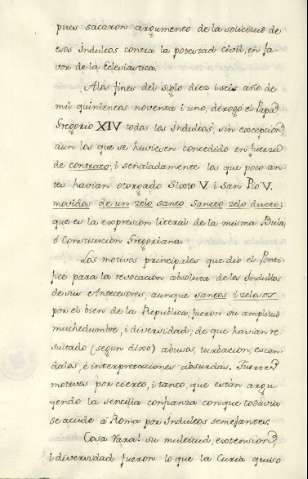 pues sacaron argumento de la solicitud de
esos Indultos contra la potestad civil, en fa-
vor de la Eclesiastica.
A los fines del siglo diez i seis año de
mil quinientos noventa i uno, derogó el Papa
Gregorio XIV todas los Indultos, sin excepcion,
aun los que se huviesen concedido en fuerza
de contrato, i señaladamente los que poco an-
tes havian otorgado Sixto V i San Pio V.
movidos de un zelo santo Sancto zelo ducti;
que es la expresion literal de la misma Bula,
ó Constitucion Gregoriana.
Los motivos principales que dió el Pontí-
fice para la revocacion absoluta de los Indultos
de sus Antecesores, aunque santos i zelosos
por el bien de la Republica, fueron su amplitud
muchedumbre, i diversidad, de que havian re-
sultado (segun dixo) abusos, turbacion, escan-
dalos, é interpretaciones absurdas. Fueron
motivos por cierto, i tanto, que están argu-
yendo la sencilla confianza con que todavia
se acude á Roma por Indultos semejantes.
Cosa rara! su multitud, extension,
i diversidad fueron lo que la Curia quiso